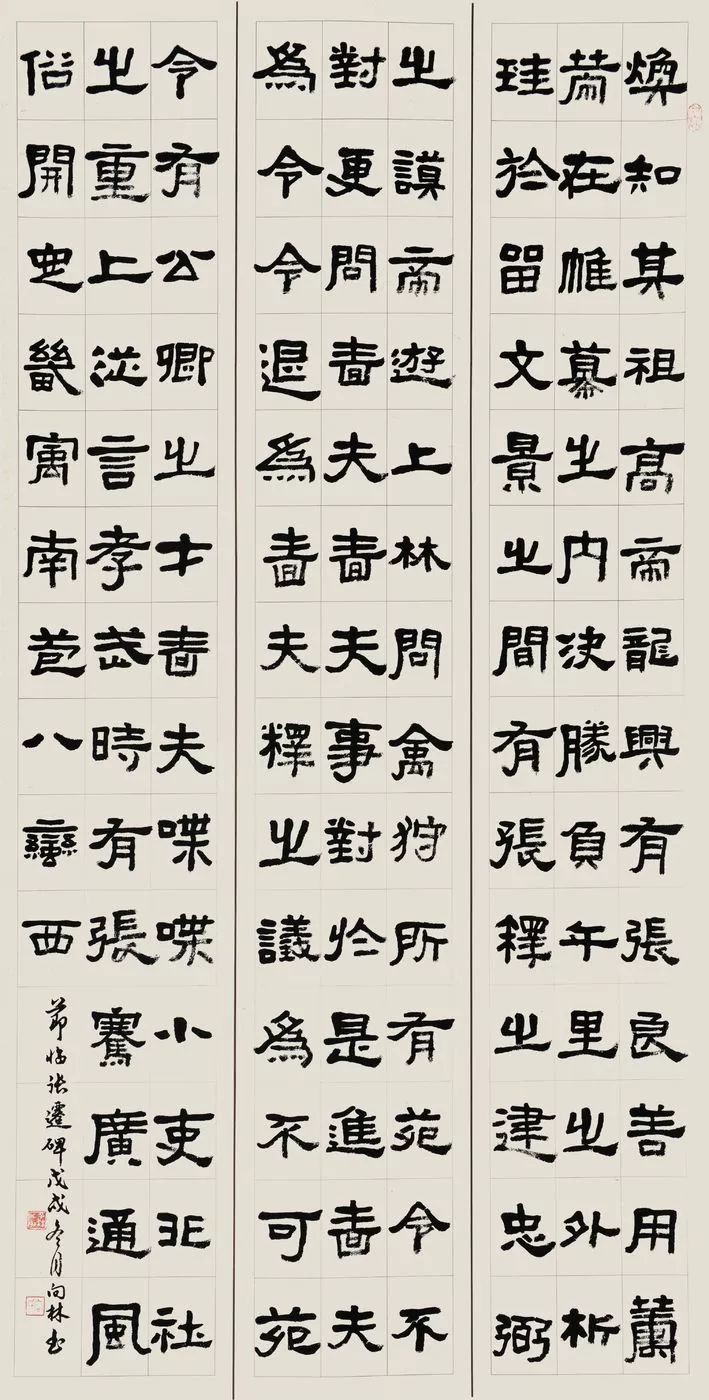 煥知其祖高帝龍興有張良善用籌
策在帷幕之內決勝負千里之外析
珪於留文景之間有張釋之建忠弼
之謨帝遊上林問禽狩所有苑令不
對更問嗇夫嗇夫事對於是進嗇夫
為令令退為嗇夫釋之議為不可苑
令有公卿之才嗇夫喋喋小吏非社
之重上從言孝武時有張騫廣通風
俗開定畿寓南苞八蠻西
節临张遷碑戊戌冬月向林书